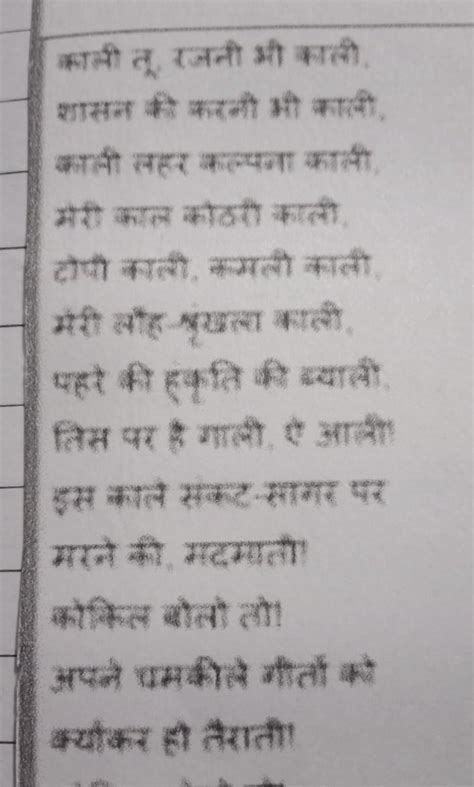 काली तू, रजनी भी काली,
शासन की करनी भी काली,
काली लहर कल्पना काली,
मेरी काल कोठरी काली,
टोपी काली, कमली काली,
मेरी लौह-श्रृंखला काली,
पहरे की हुंकृति की ब्याली,
तिस पर है गाली, ऐ आली!
इस काले संकट-सागर पर
मरने की, मदमाती!
कोकिल बोलो तो!
अपने चमकीले गीतों को
क्योंकर हो तैराती!